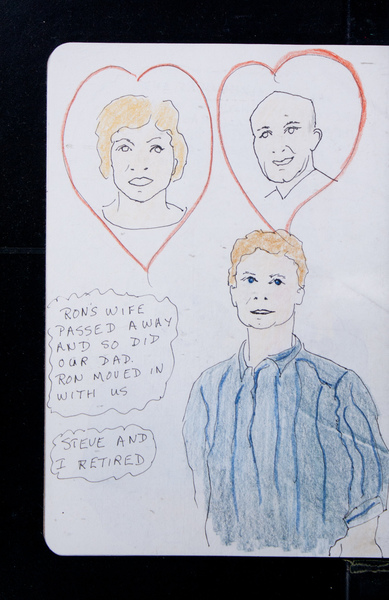 RON'S WIFE
PASSED AWAY
AND SO DID
OUR DAD.
RON MOVED IN
WITH US
STEVE AND
I RETIRED